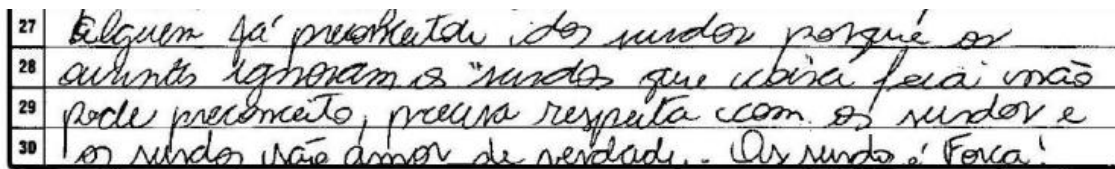 27 Alguem já preconceitou dos surdos porqué os
28 ouvintes ignoram os surdos que coisa feia não
29 pode preconceito, precisa respeita com os surdos e
30 os surdos são amor de verdade. Os surdo é Forca!